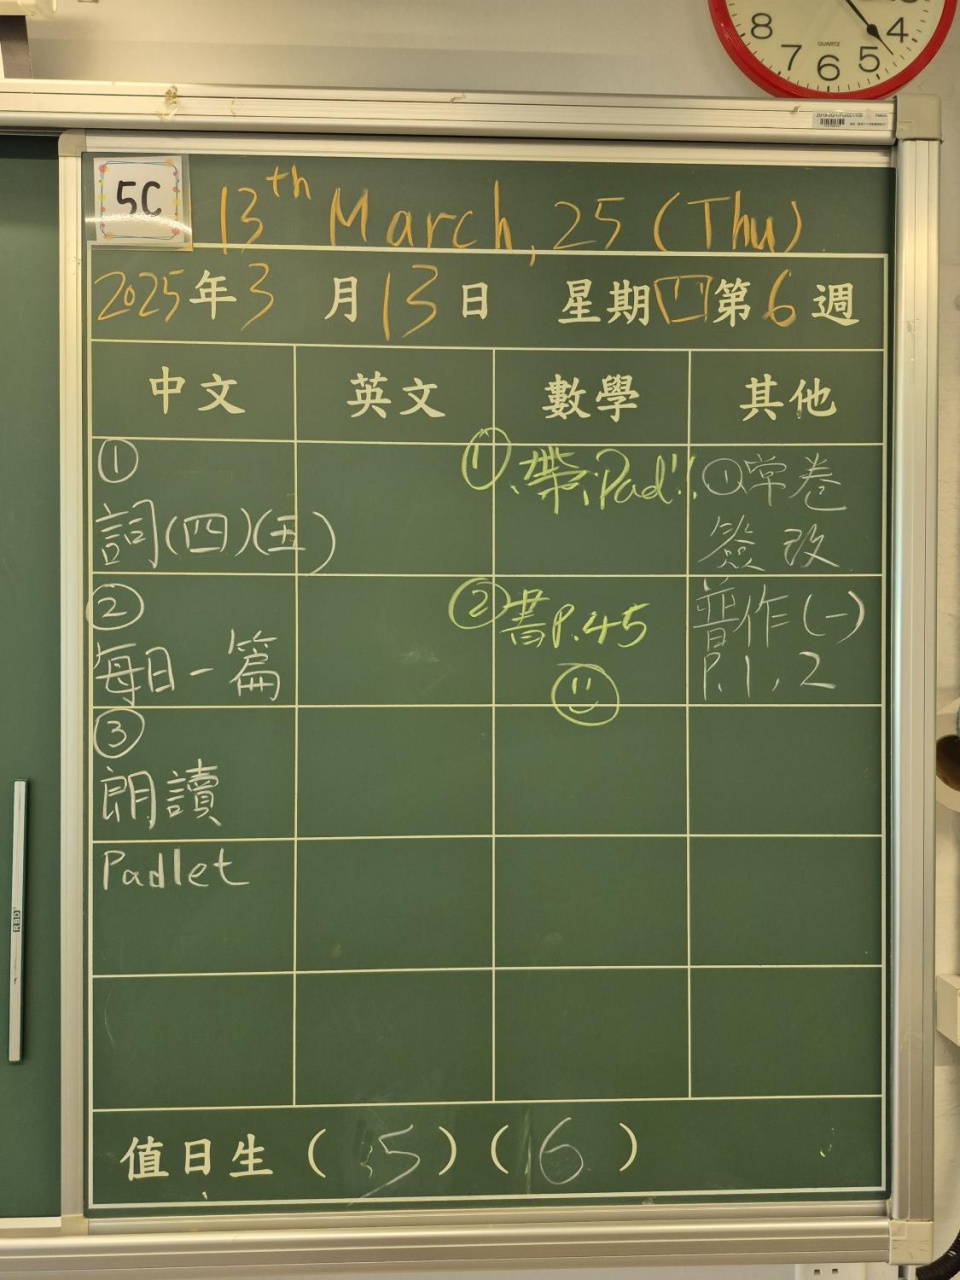 8
7
6
5
4
QUARTZ
5C
13th March, 25 (Thu)
2025年3月13日 星期四第6週
中文 英文 數學 其他
①
詞(四)(五)
①、帶iPad!!
①常卷
簽改
②
每日一篇
②書P.45
普作(一)
P.1, 2
③
朗讀
Padlet
值日生 (5) (16)